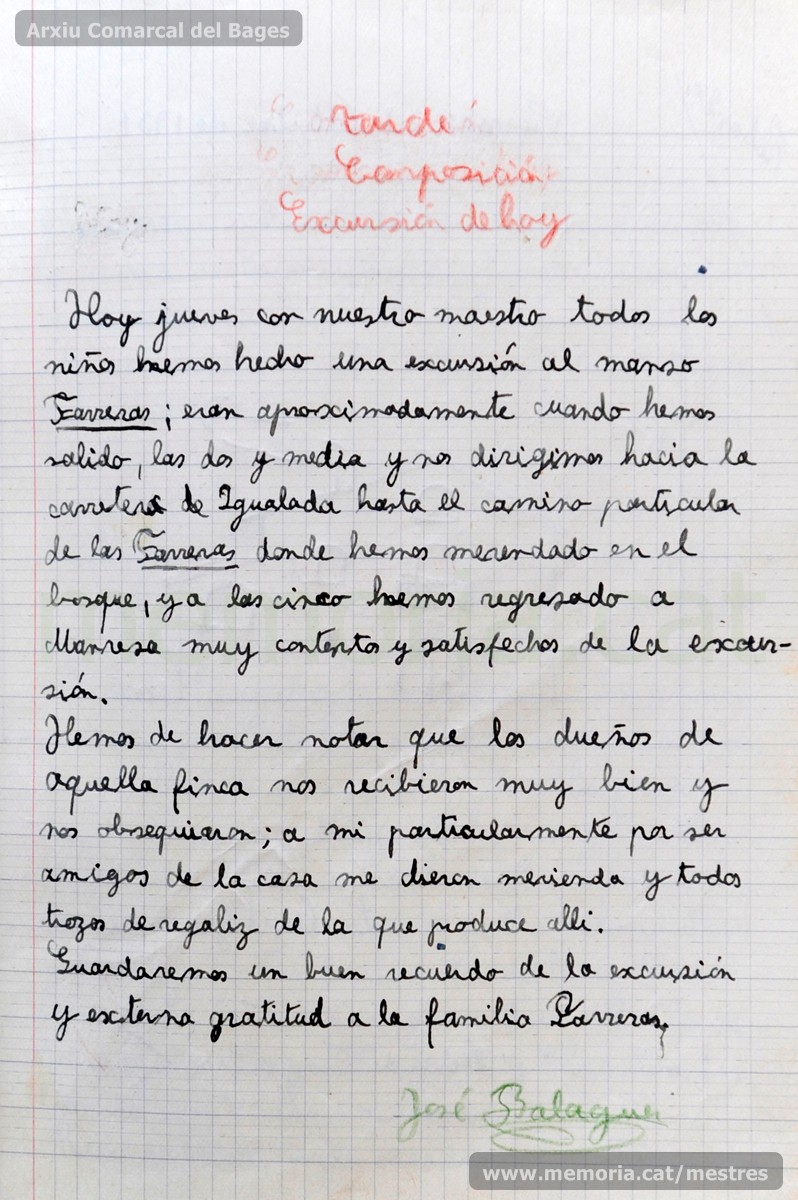 Arxiu Comarcal del Bages
Tarde
Composición
Excursión de hoy
Hoy jueves con nuestro maestro todos los
niños hemos hecho una excursión al manso
Farreras; eran aproximadamente cuando hemos
salido, las dos y media y nos dirigimos hacia la
carretera de Igualada hasta el camino particular
de las Farreras donde hemos merendado en el
bosque, y a las cinco hemos regresado a
Manresa muy contentos y satisfechos de la excur-
sión.
Hemos de hacer notar que los dueños de
aquella finca nos recibieron muy bien y
nos obsequiaron; a mi particularmente por ser
amigos de la casa me dieron merienda y todos
trozos de regaliz de la que produce alli.
Guardaremos un buen recuerdo de la excursión
y externa gratitud a la familia Farreras.
José Balaguer
www.memoria.cat/mestres